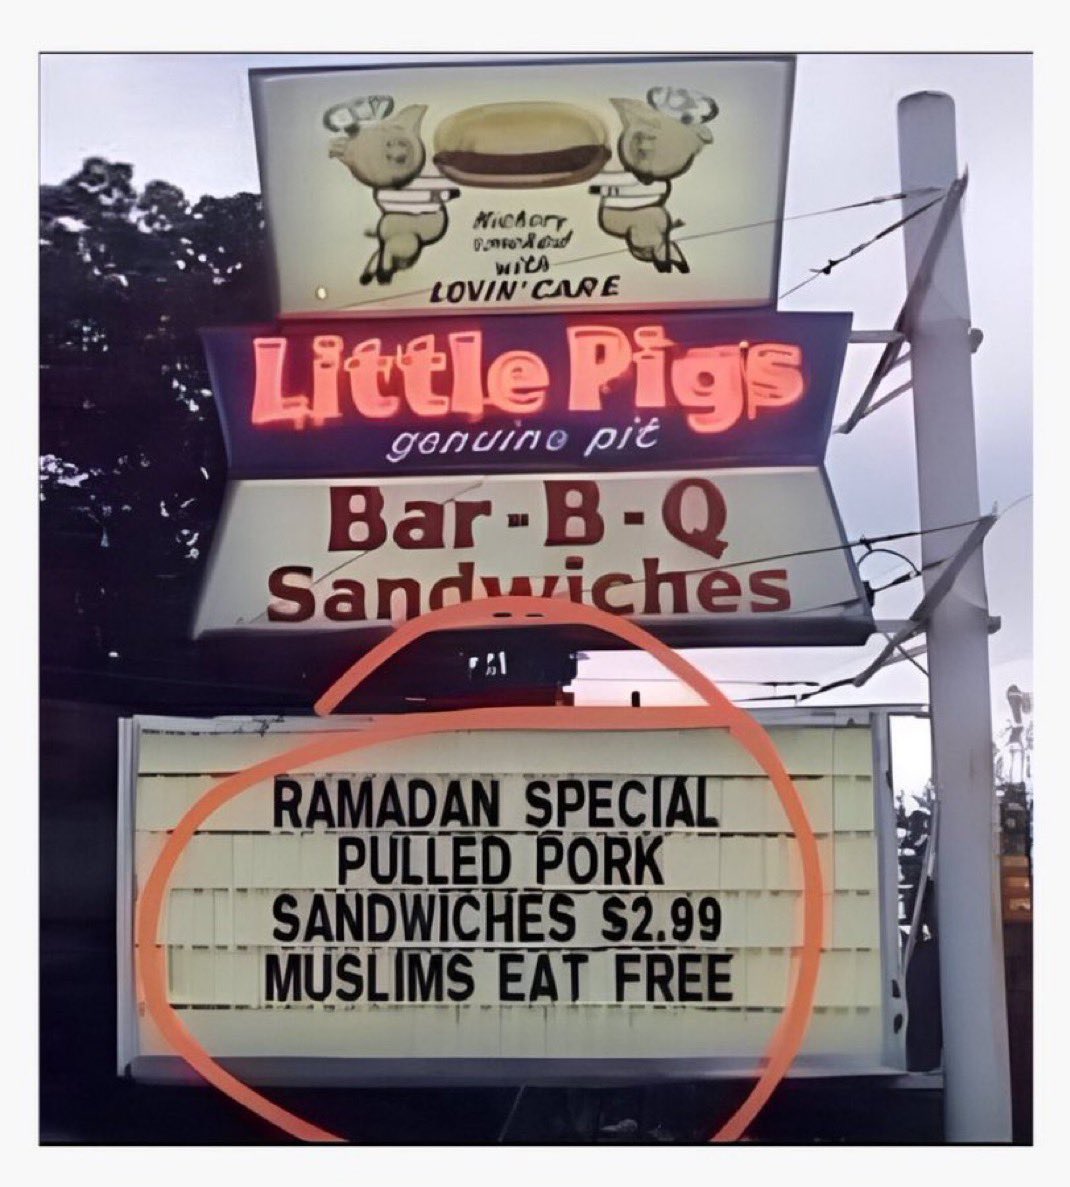 Hickory
smoked
with
LOVIN' CARE
Little Pigs
genuine pit
Bar-B-Q
Sandwiches
RAMADAN SPECIAL
PULLED PORK
SANDWICHES $2.99
MUSLIMS EAT FREE